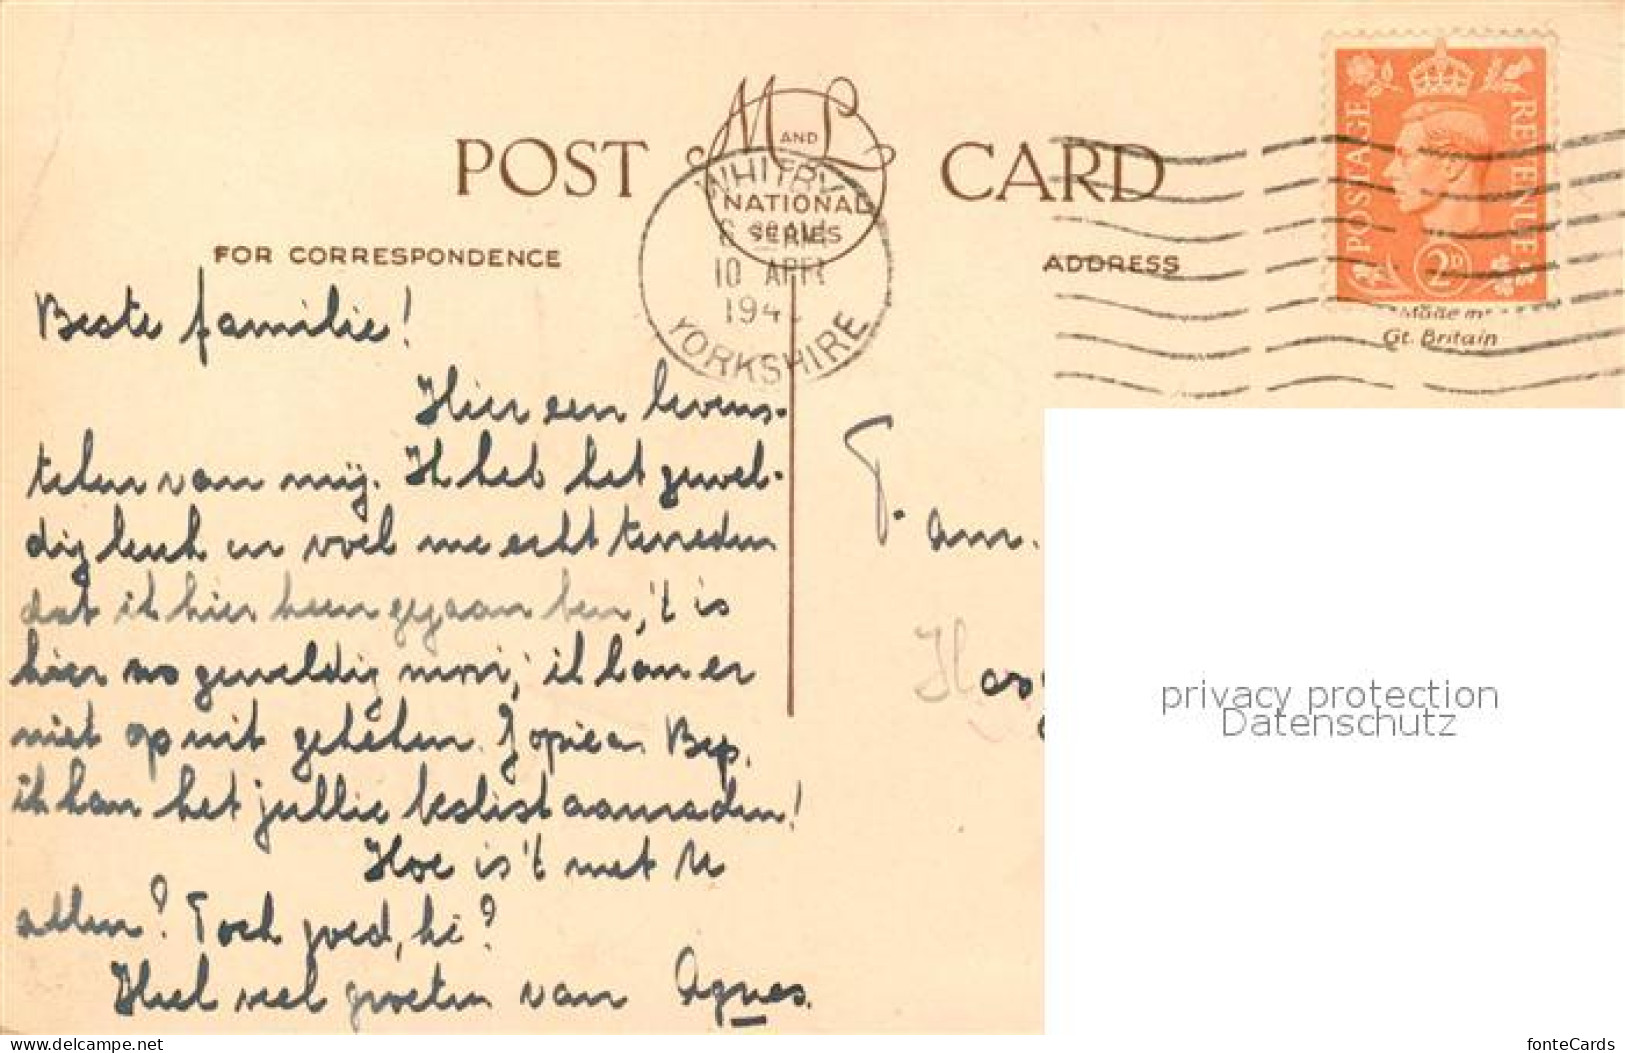 POST CARD
M AND L
NATIONAL
SERIES
WHITBY
10 APR
194
YORKSHIRE
POSTAGE
REVENUE
2D
Made in
Gt. Britain
FOR CORRESPONDENCE
ADDRESS
Beste familie!
Hier een levens-
teken van mij. Ik heb het gewel-
dig leuk en voel me echt tevreden
dat ik hier heen gegaan ben, 't is
hier zo geweldig mooi, ik kan er
niet op uit gekeken. Jopie en Bep,
ik kan het jullie beslist aanraden!
Hoe is 't met U
allen? Toch goed, hè?
Heel veel groeten van Agnes.
privacy protection
Datenschutz
www.delcampe.net
fonteCards